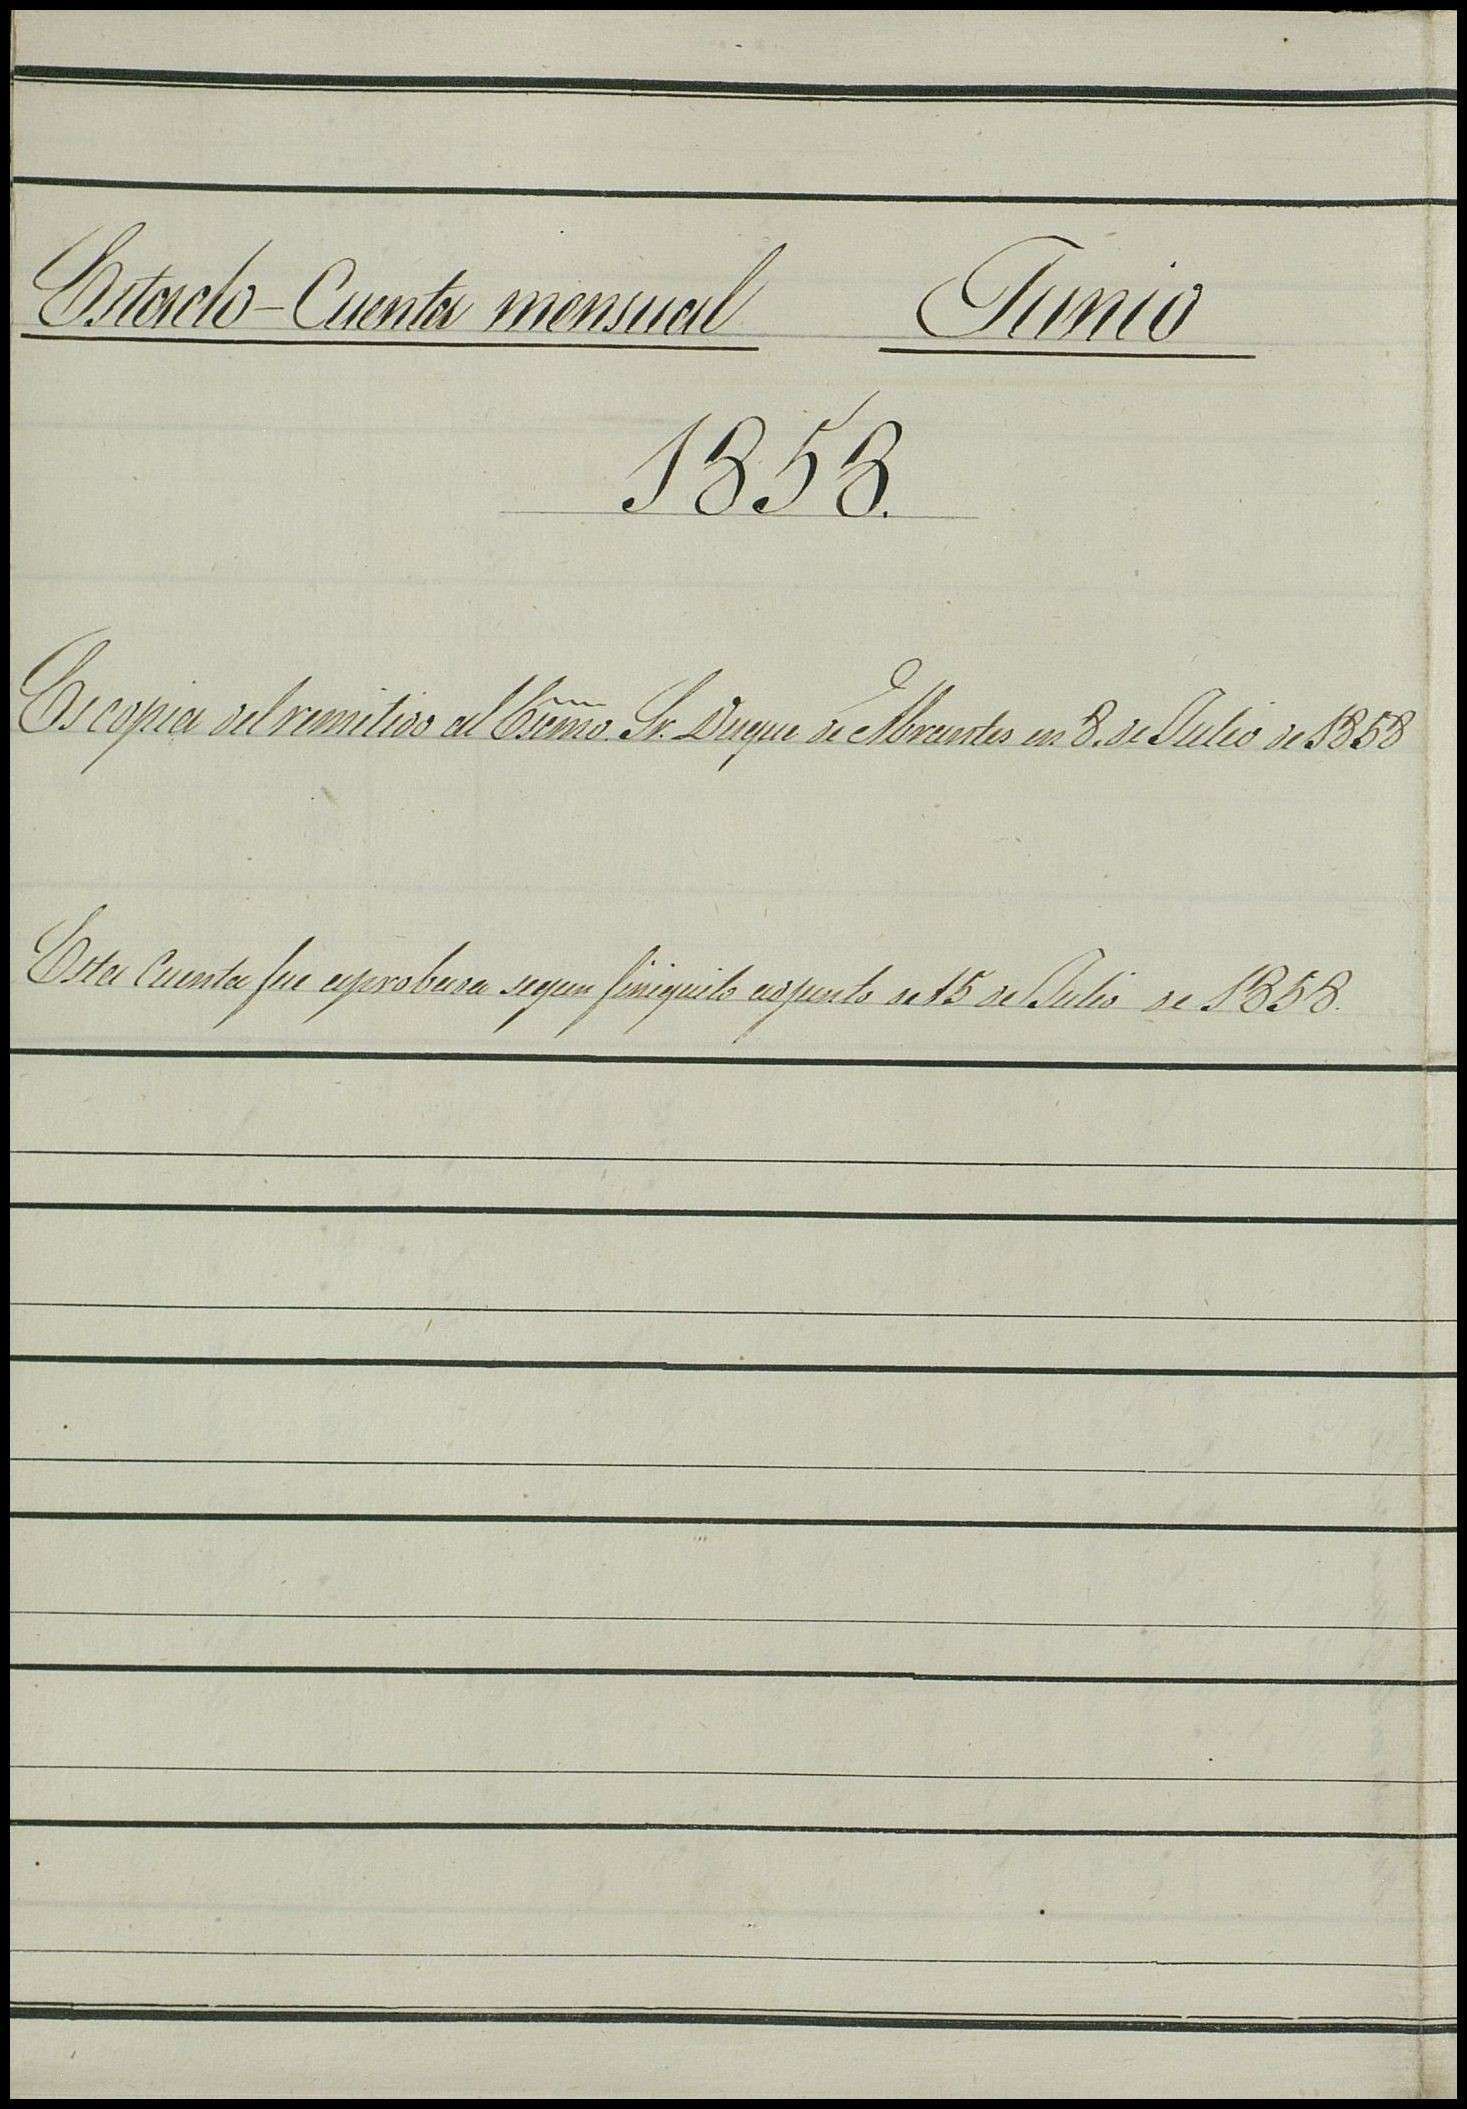 Estado-Cuenta mensual Junio
1858.
Es copia del remitido al Excmo. Sr. Duque de Abrantes en 8. de Julio de 1858
Esta Cuenta fue aprobada segun finiquito adjunto de 15 de Julio de 1858.